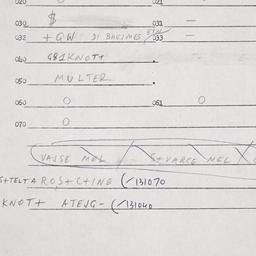 020 021
030 $ 031 —
032 + GW DI BHUIMES ETW 033 —
040 G81KNOT+
050 MULTER
060 O 061 O
070 O
VAJSE MEL S+VARCE MEL
S+TELTA ROS+C+INE (/131070
KNOT+ ATEJG- (/131040